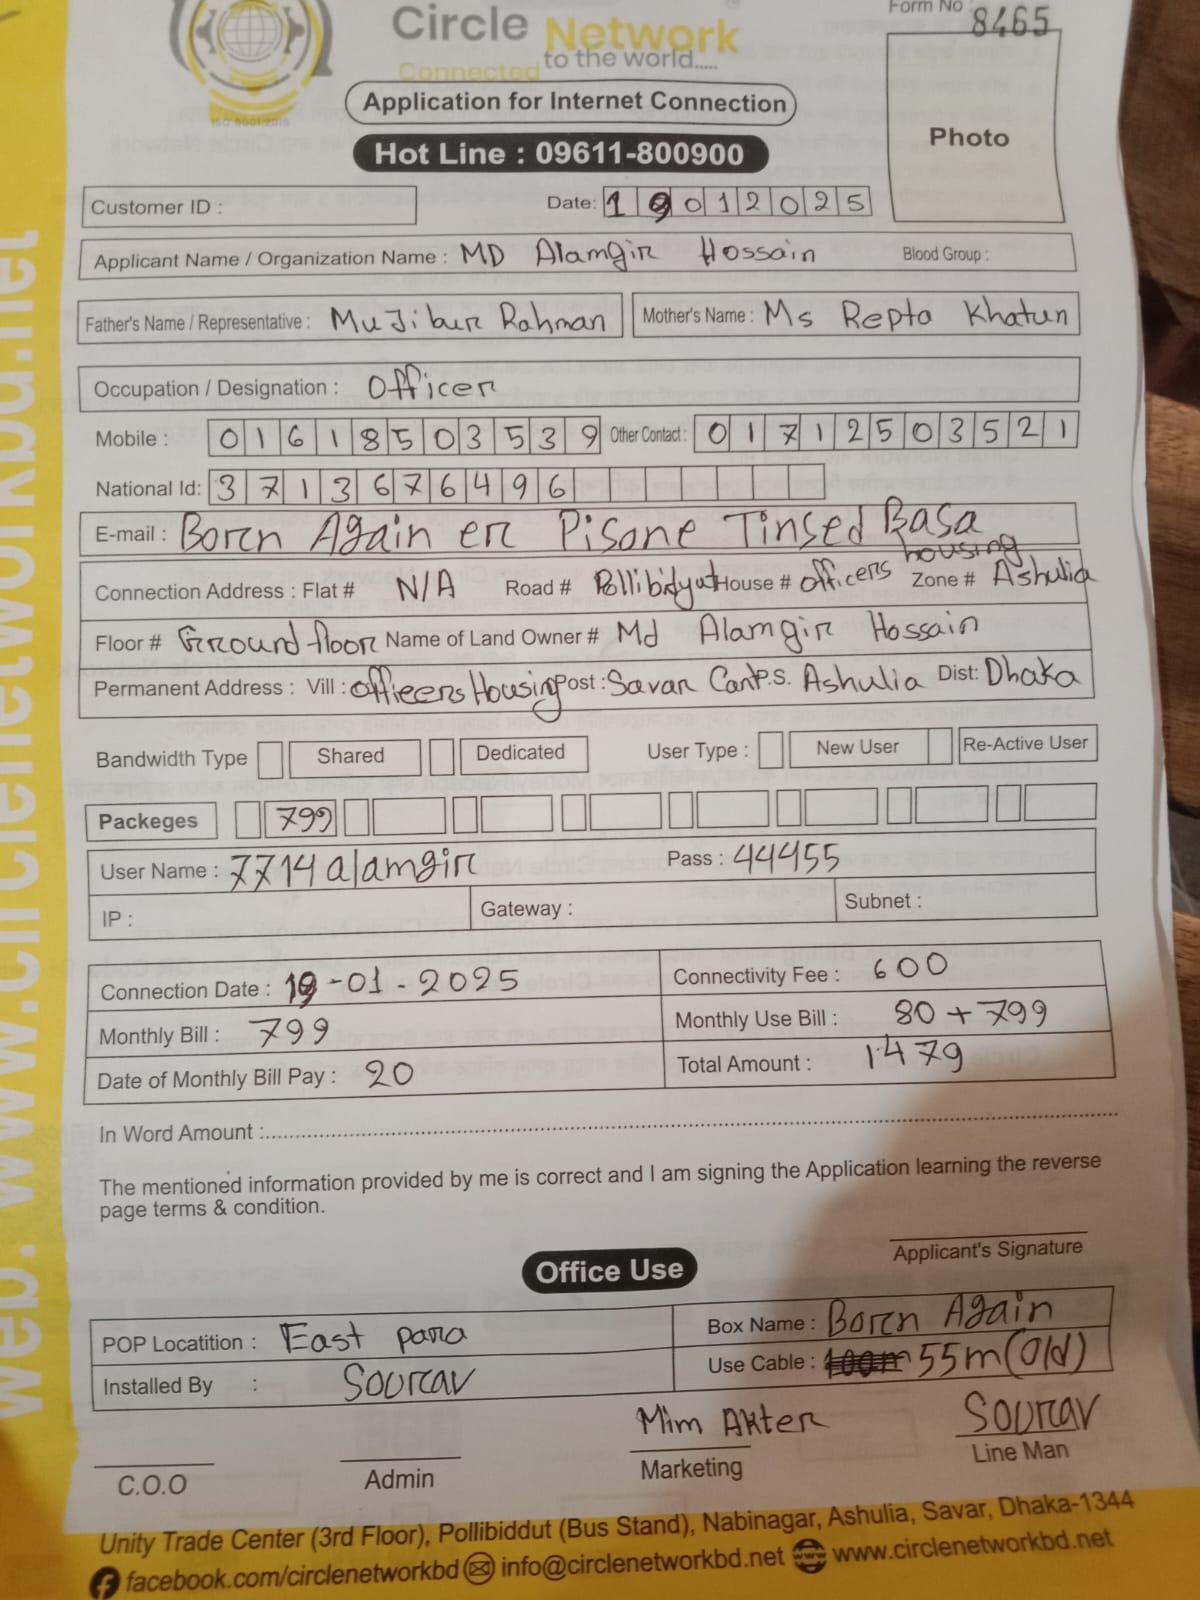 Form No : 8465
Circle Network
Connected to the world.....
ISO 9001:2015
Application for Internet Connection
Photo
Hot Line : 09611-800900
Customer ID : Date: 19012025
Applicant Name / Organization Name : MD Alamgir Hossain Blood Group :
Father's Name / Representative : MuJibur Rahman Mother's Name : Ms Repta Khatun
Occupation / Designation : Officer
Mobile : 01618503539 Other Contact : 01712503521
National Id: 3713676496
E-mail : Born Again er Pisone Tinsed Basa
Connection Address : Flat # N/A Road # Pollibidyut House # officers housing Zone # Ashulia
Floor # Ground floor Name of Land Owner # Md Alamgir Hossain
Permanent Address : Vill : officers Housing Post : Savar Cant P.S. Ashulia Dist: Dhaka
Bandwidth Type Shared Dedicated User Type : New User Re-Active User
Packeges 799
User Name : 7714alamgir Pass : 44455
IP : Gateway : Subnet :
Connection Date : 19-01-2025 Connectivity Fee : 600
Monthly Bill : 799 Monthly Use Bill : 80 + 799
Date of Monthly Bill Pay : 20 Total Amount : 1479
In Word Amount :
The mentioned information provided by me is correct and I am signing the Application learning the reverse
page terms & condition.
Applicant's Signature
Office Use
POP Locatition : East para Box Name : Born Again
Installed By : Sourav Use Cable : 100m 55m(Old)
Mim Akter Sourav
C.O.O Admin Marketing Line Man
Unity Trade Center (3rd Floor), Pollibiddut (Bus Stand), Nabinagar, Ashulia, Savar, Dhaka-1344
facebook.com/circlenetworkbd info@circlenetworkbd.net www.circlenetworkbd.net
web: www.circlenetworkbd.net